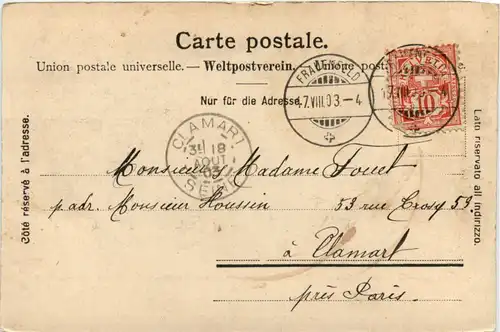 Carte postale.
Union postale universelle. — Weltpostverein. — Unione postale
Nur für die Adresse.
FRAUENFELD
17.VIII.03.–4
17.VIII.03.–4
HELVETIA
10
CLAMART
18
AOUT
03
SEINE
Côté réservé à l'adresse.
Lato riservato all indirizzo.
Monsieur Madame
p adr. Monsieur Houssin 53 rue 59.
à Clamart
près Paris.